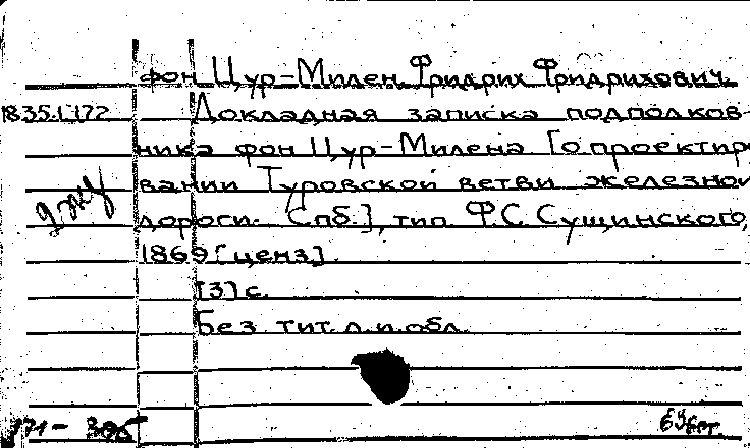 фон Цур-Милен, Фридрих Фридрихович.
18351172 Докладная записка подполков-
ника фон Цур-Милена [о проектир
вании Туровской ветви железной
дороги. Спб.], тип. Ф.С. Сущинского,
1869 [ценз].
[3] с.
Без тит. л. и обл.